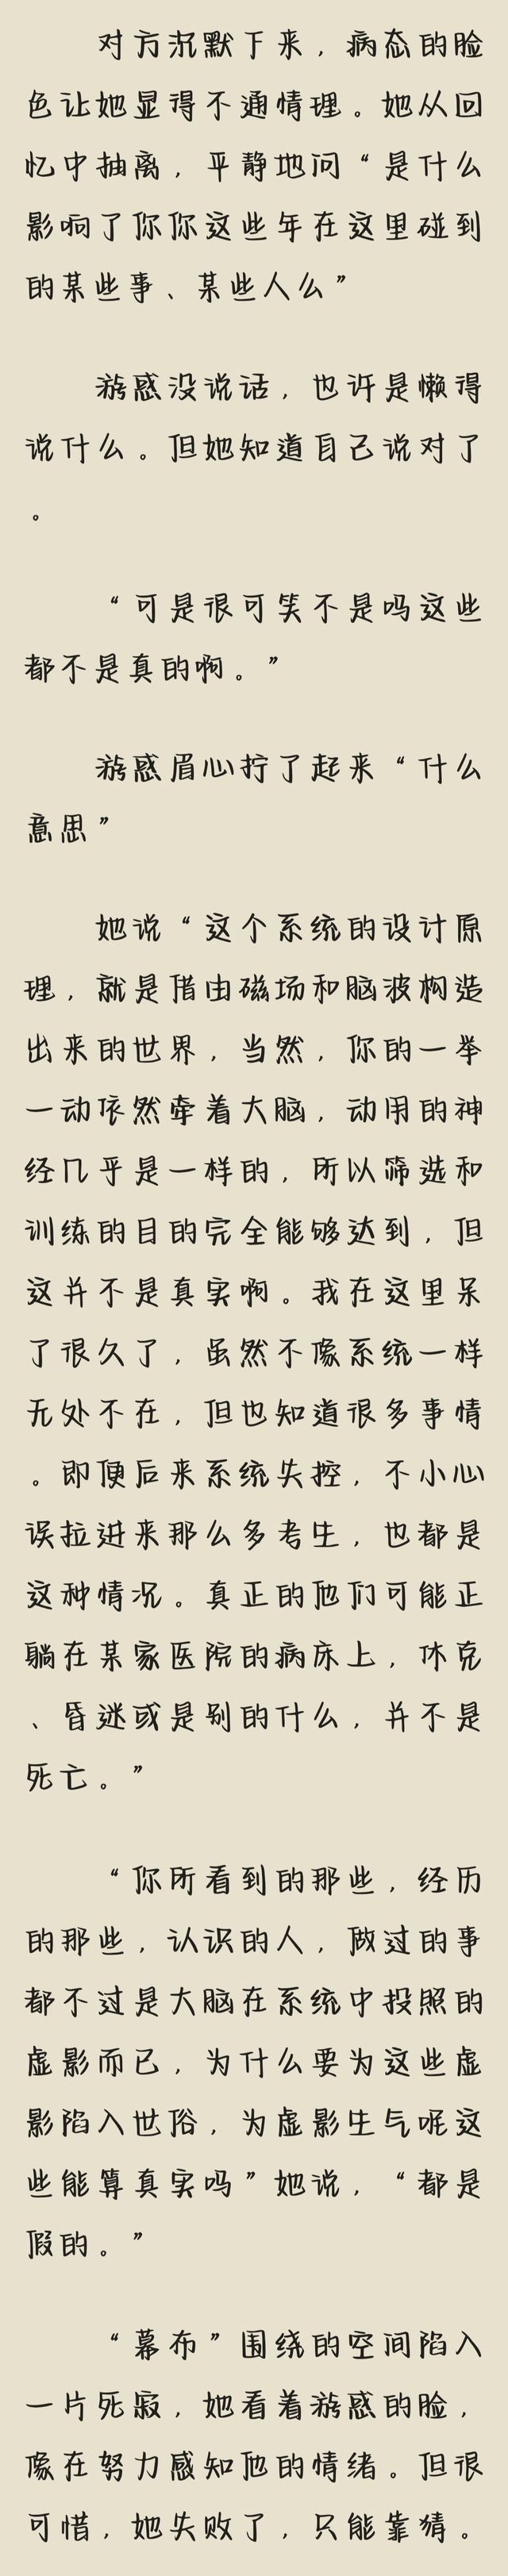 对方沉默下来，病态的脸
色让她显得不通情理。她从回
忆中抽离，平静地问“是什么
影响了你你这些年在这里碰到
的某些事、某些人么”
游惑没说话，也许是懒得
说什么。但她知道自己说对了
。
“可是很可笑不是吗这些
都不是真的啊。”
游惑眉心拧了起来“什么
意思”
她说“这个系统的设计原
理，就是借由磁场和脑波构造
出来的世界，当然，你的一举
一动依然牵着大脑，动用的神
经几乎是一样的，所以筛选和
训练的目的完全能够达到，但
这并不是真实啊。我在这里呆
了很久了，虽然不像系统一样
无处不在，但也知道很多事情
。即便后来系统失控，不小心
误拉进来那么多考生，也都是
这种情况。真正的他们可能正
躺在某家医院的病床上，休克
、昏迷或是别的什么，并不是
死亡。”
“你所看到的那些，经历
的那些，认识的人，做过的事
都不过是大脑在系统中投照的
虚影而已，为什么要为这些虚
影陷入世俗，为虚影生气呢这
些能算真实吗”她说，“都是
假的。”
“幕布”围绕的空间陷入
一片死寂，她看着游惑的脸，
像在努力感知他的情绪。但很
可惜，她失败了，只能靠猜。